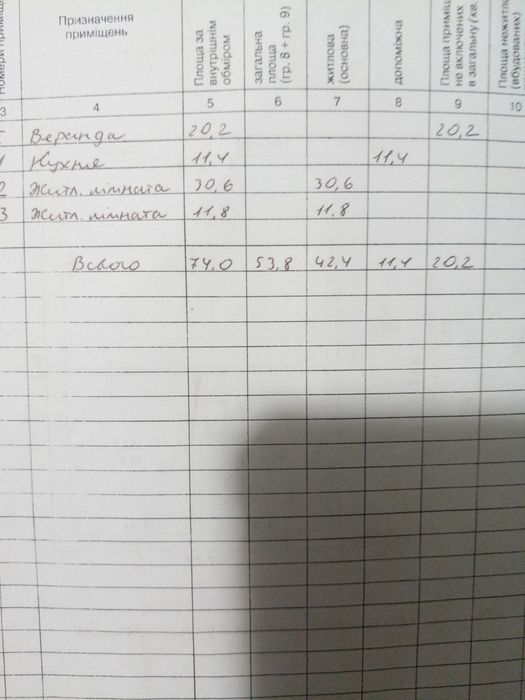 Номери приміщ
Призначення приміщень
Площа за внутрішнім обміром
загальна площа (гр. 8 + гр. 9)
житлова (основна)
допоміжна
Площа приміщ не включених в загальну (кв.
Площа нежитло (вбудованих)
3 4 5 6 7 8 9 10
I Веранда 20,2 20,2
1 Кухня 11,4 11,4
2 Житл. кімната 30,6 30,6
3 Житл. кімната 11,8 11.8
Всього 74.0 53,8 42,4 11,4 20,2